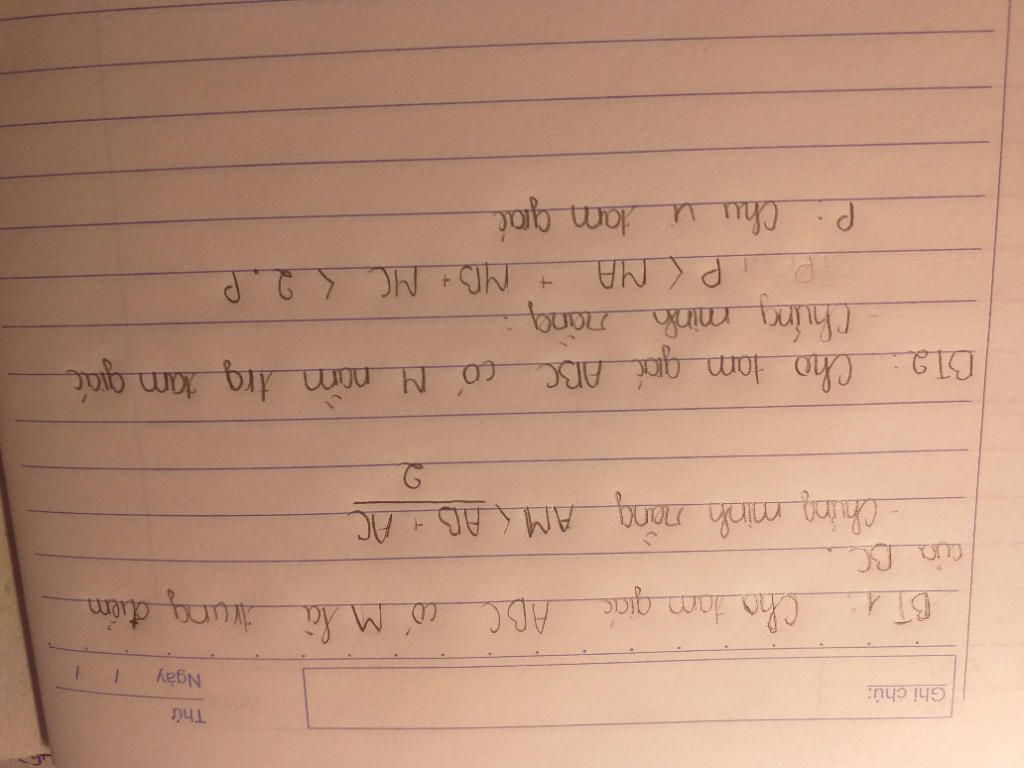 Ghi chú:
Thứ
Ngày / /
BT1: Cho tam giác ABC có M là trung điểm
của BC.
- Chứng minh rằng AM < AB + AC
2
BT2: Cho tam giác ABC có M nằm trg tam giác
- Chứng minh rằng:
P < MA + MB + MC < 2.P
P: Chu vi tam giác